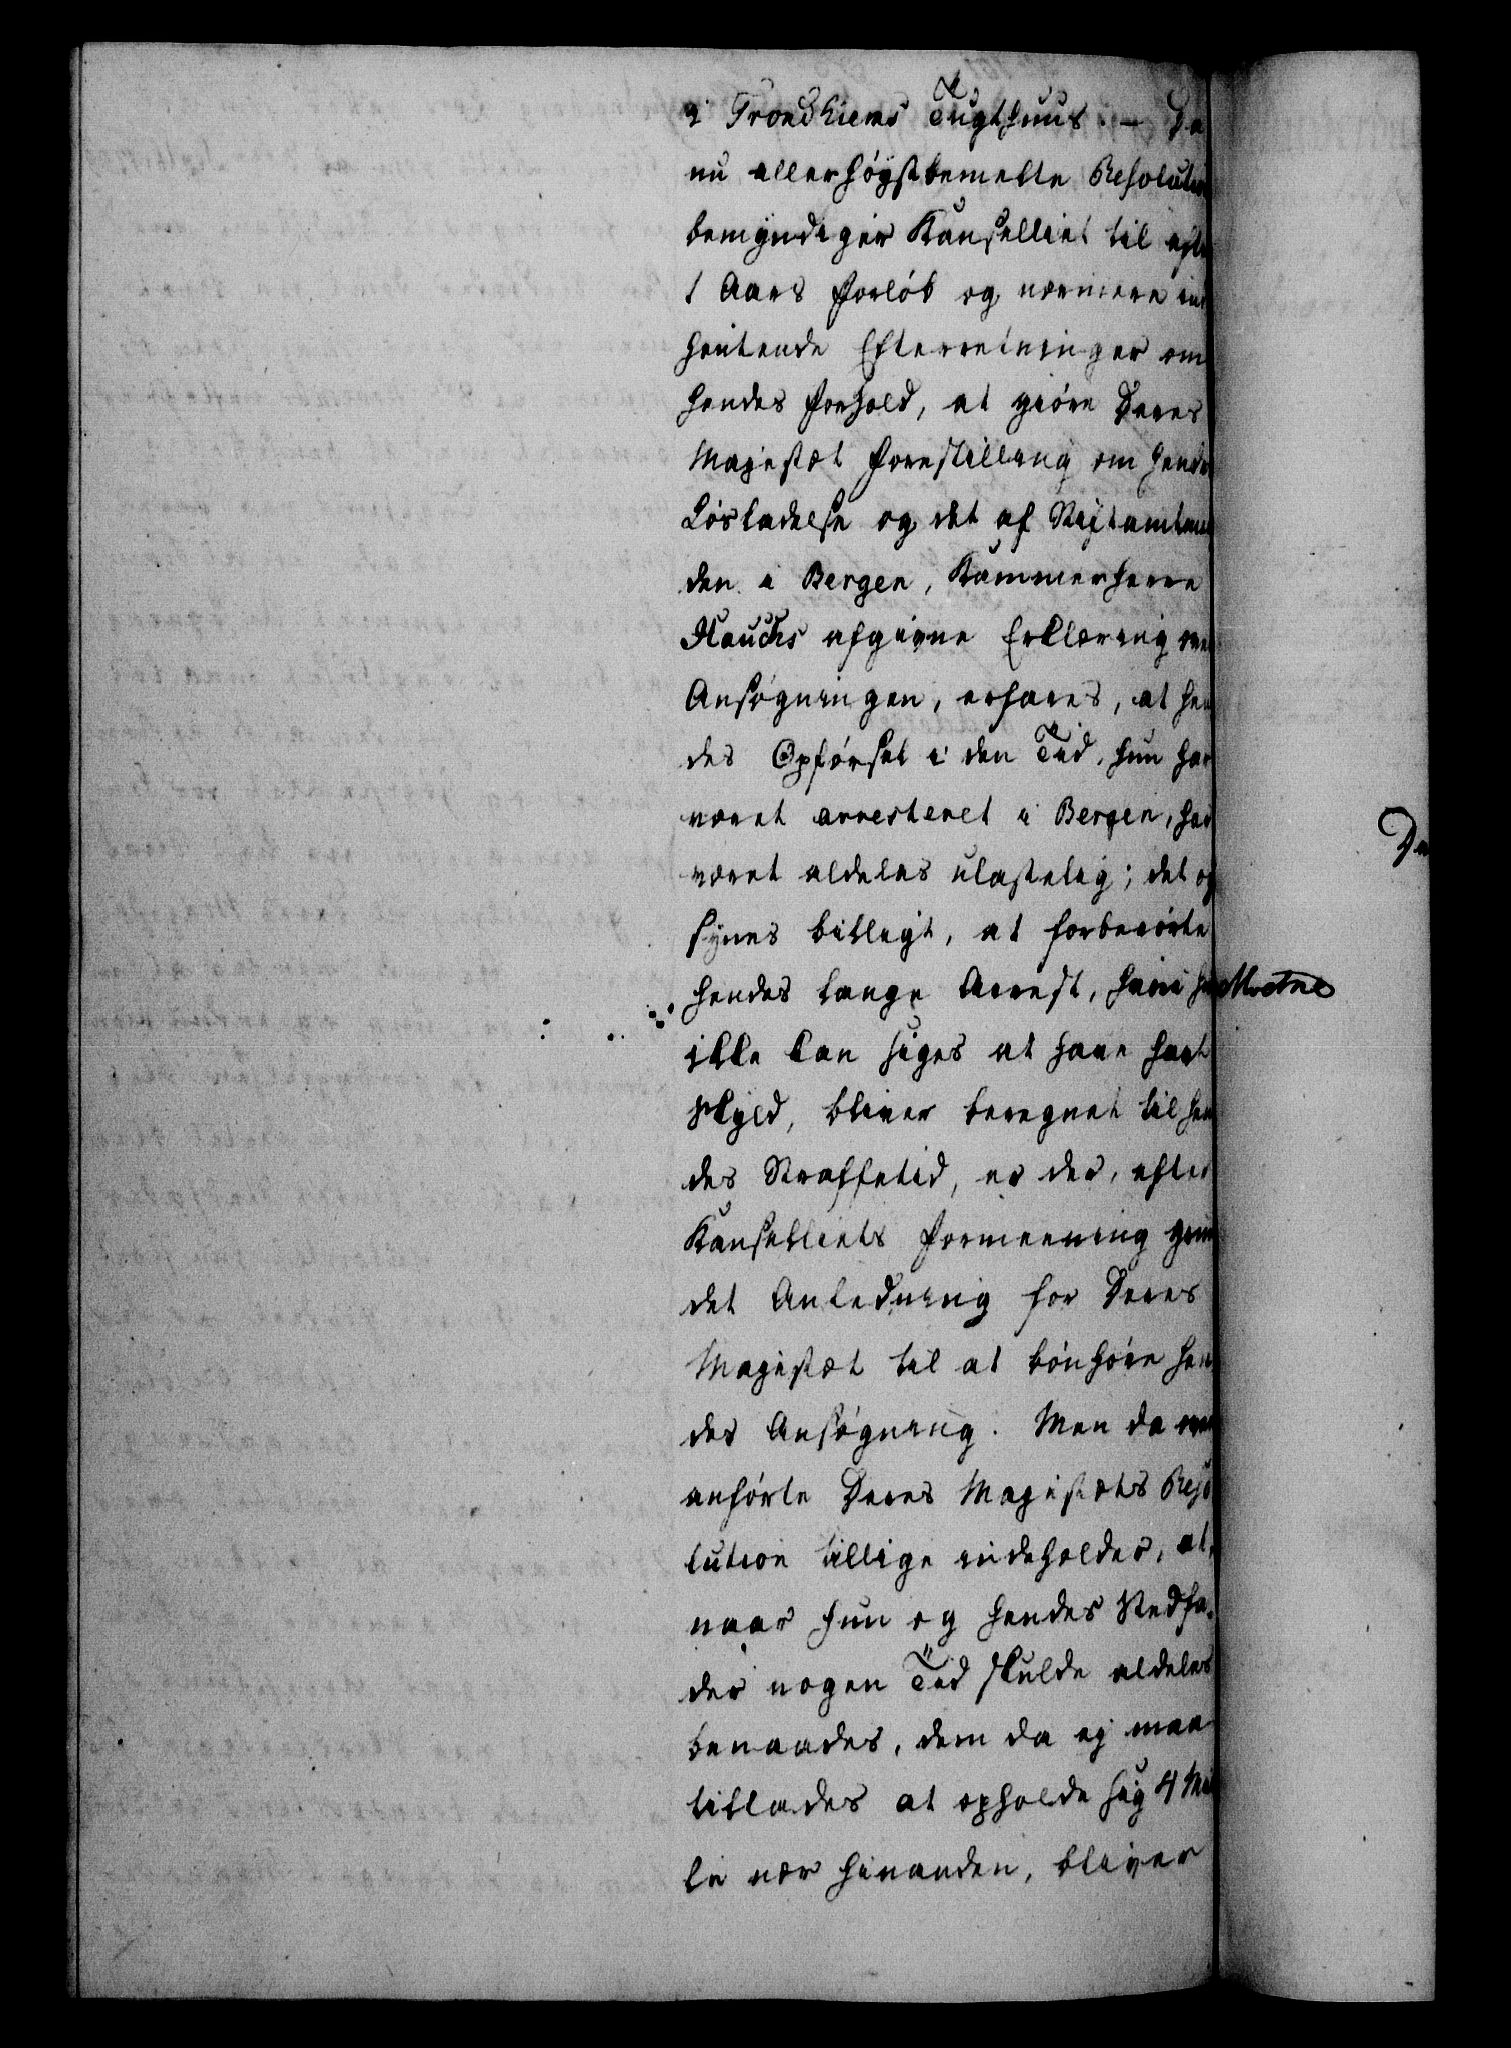 i Trondhiems Tugthuus. — Da
nu allerhøystbemelte Resolution
bemyndiger Kanselliet til efter
1 Aars Forløb og nærmere ind
hentende Efterretninger om
hendes Forhold, at giøre Deres
Majestæt Forestilling om hendes
Løsladelse og det af Stiftamtman
den i Bergen, Kammerherre
Hauchs afgivne Erklæring over
Ansøgningen, erfares, at hen
des Opførsel i den Tid, hun har
været arresteret i Bergen, har
været aldeles ulastelig; det og
synes billigt, at forberørte
hendes lange Arrest, hvori hun
ikke kan siges at have havt
Skyld, bliver beregnet til hen
des Straffetid, er der, efter
Kanselliets Formeening grun
det Anledning for Deres
Majestæt til at bønhøre hen
des Ansøgning. Men da oven
anførte Deres Majestæts Reso
lution tillige indeholder, at,
naar hun og hendes Stedfa-
der nogen Tid skulde aldeles
benaades, dem da ej maa
tillades at opholde sig 4 Mi
le nær hinanden, bliver